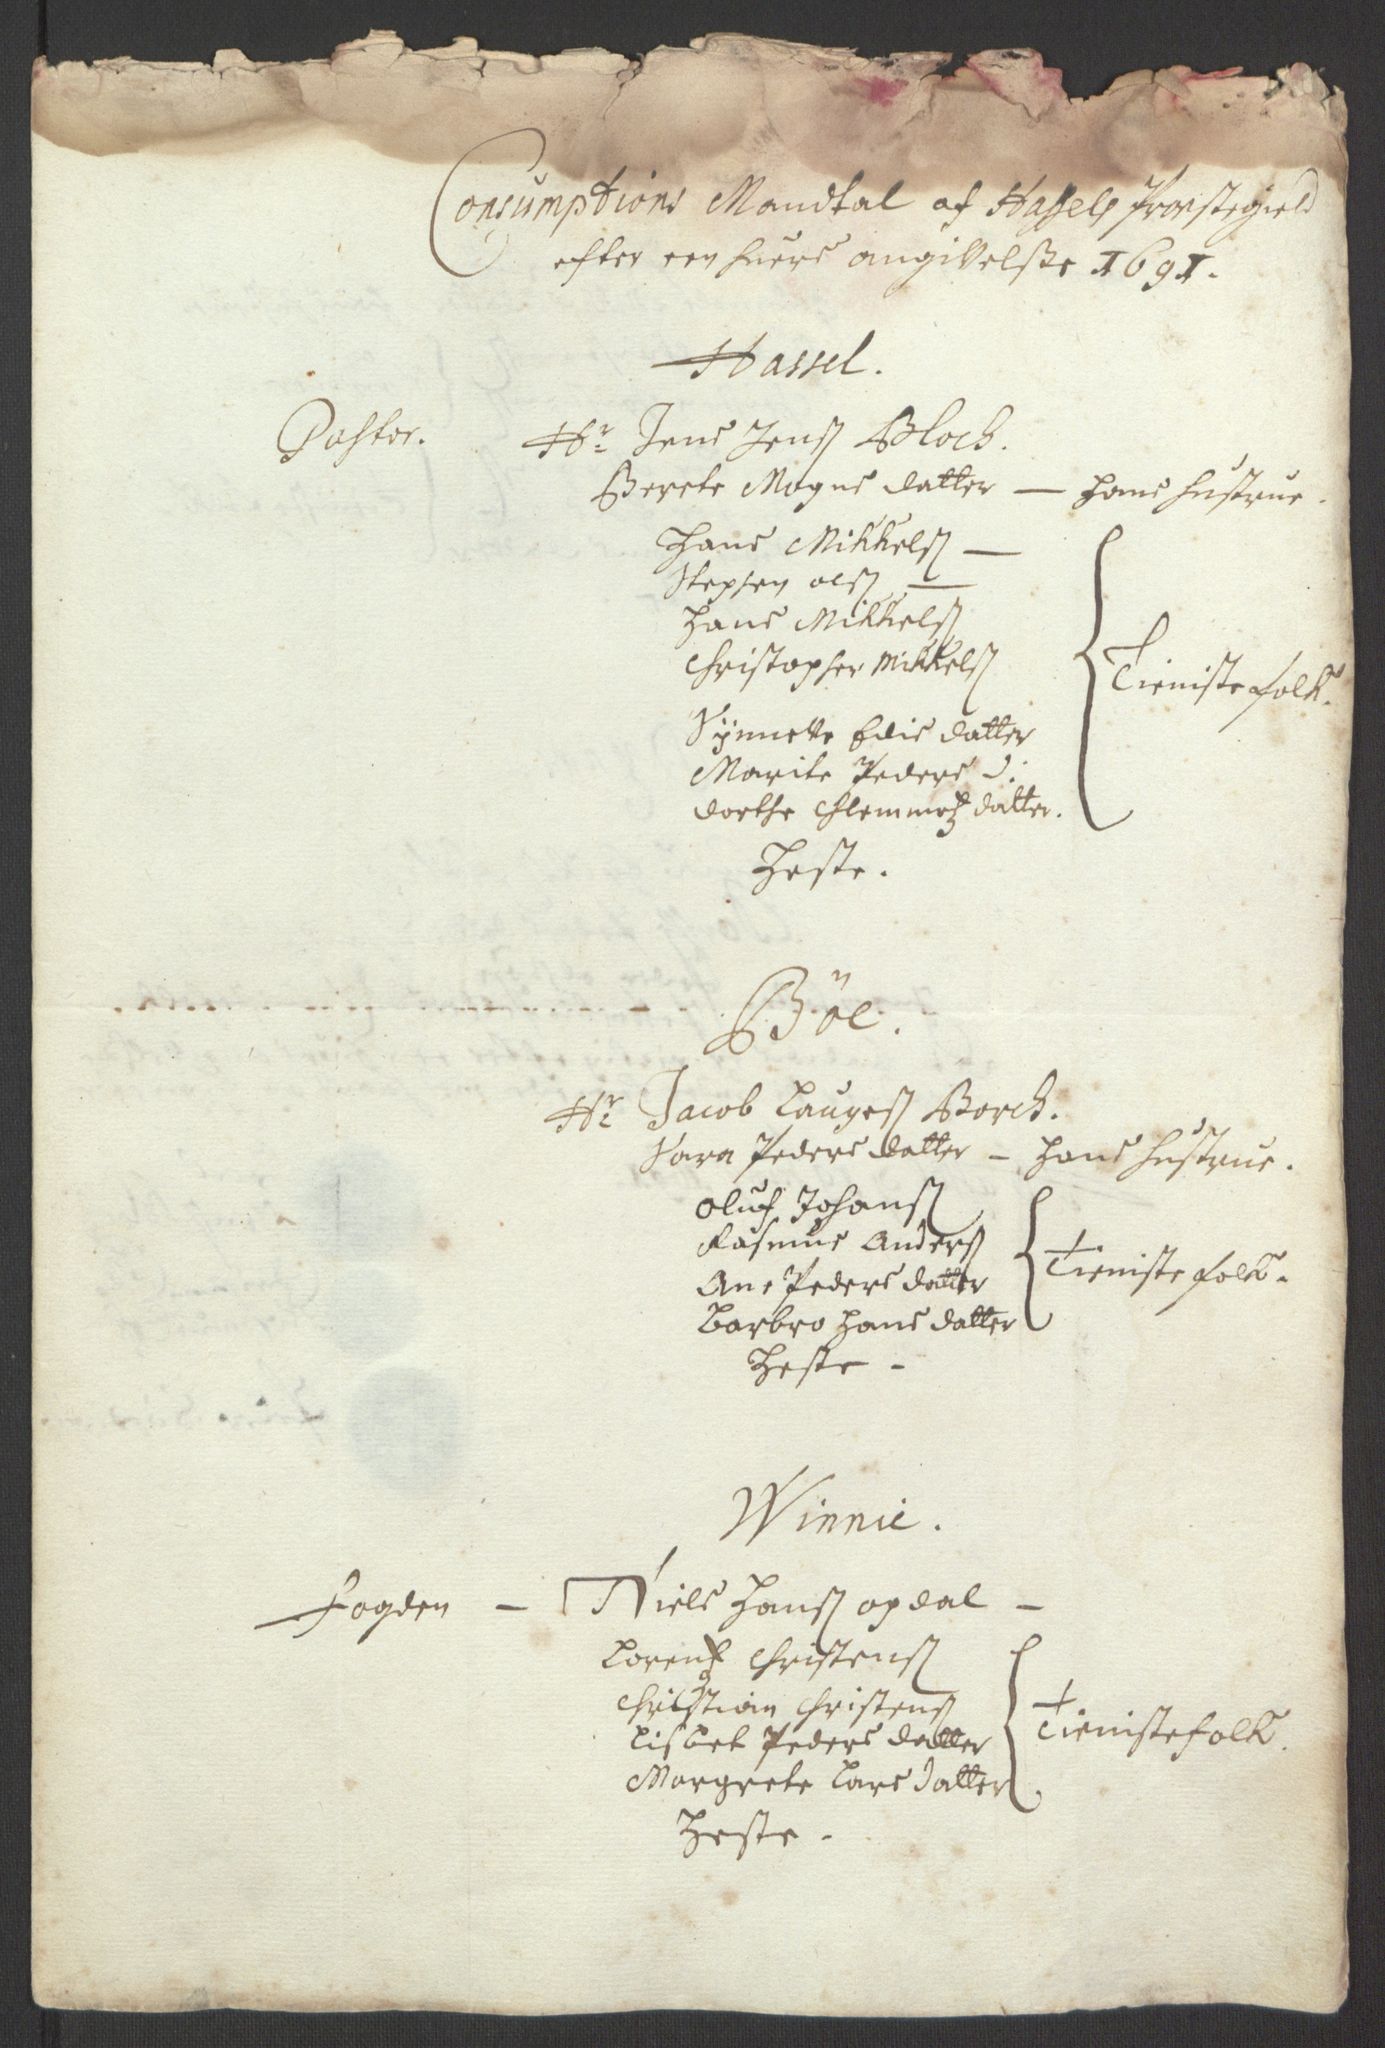 Consumptions Mandtal af Hassels Præstegield
efter een huers angivelsse 1691.
Hassel.
Pastor. Hr Jens Jenss Bloch.
Berete Mogns datter — hans hustrue.
Hans Mikkelss —
Stephen olss —
Hans Mikkelss
Christopher Mikkelss
Sÿnnette Edis datter
Marite Peders d:
dorthe Clemmetz datter.
Tieniste folk.
Heste.
Böe.
Hr Jacob Laugess Borch.
Sara Peders datter — hans hustrue.
oluf Johanss
Rasmus Anderss
Ane Peders datter
Barbro Hans datter
Tieniste folk.
Heste —
Winnie.
Fogden — Niels Hanss opdal —
Lorentz Christenss
Christian Christenss
Lisbet Peders datter
Margrete Lars datter
Tienistefolk.
Heste —